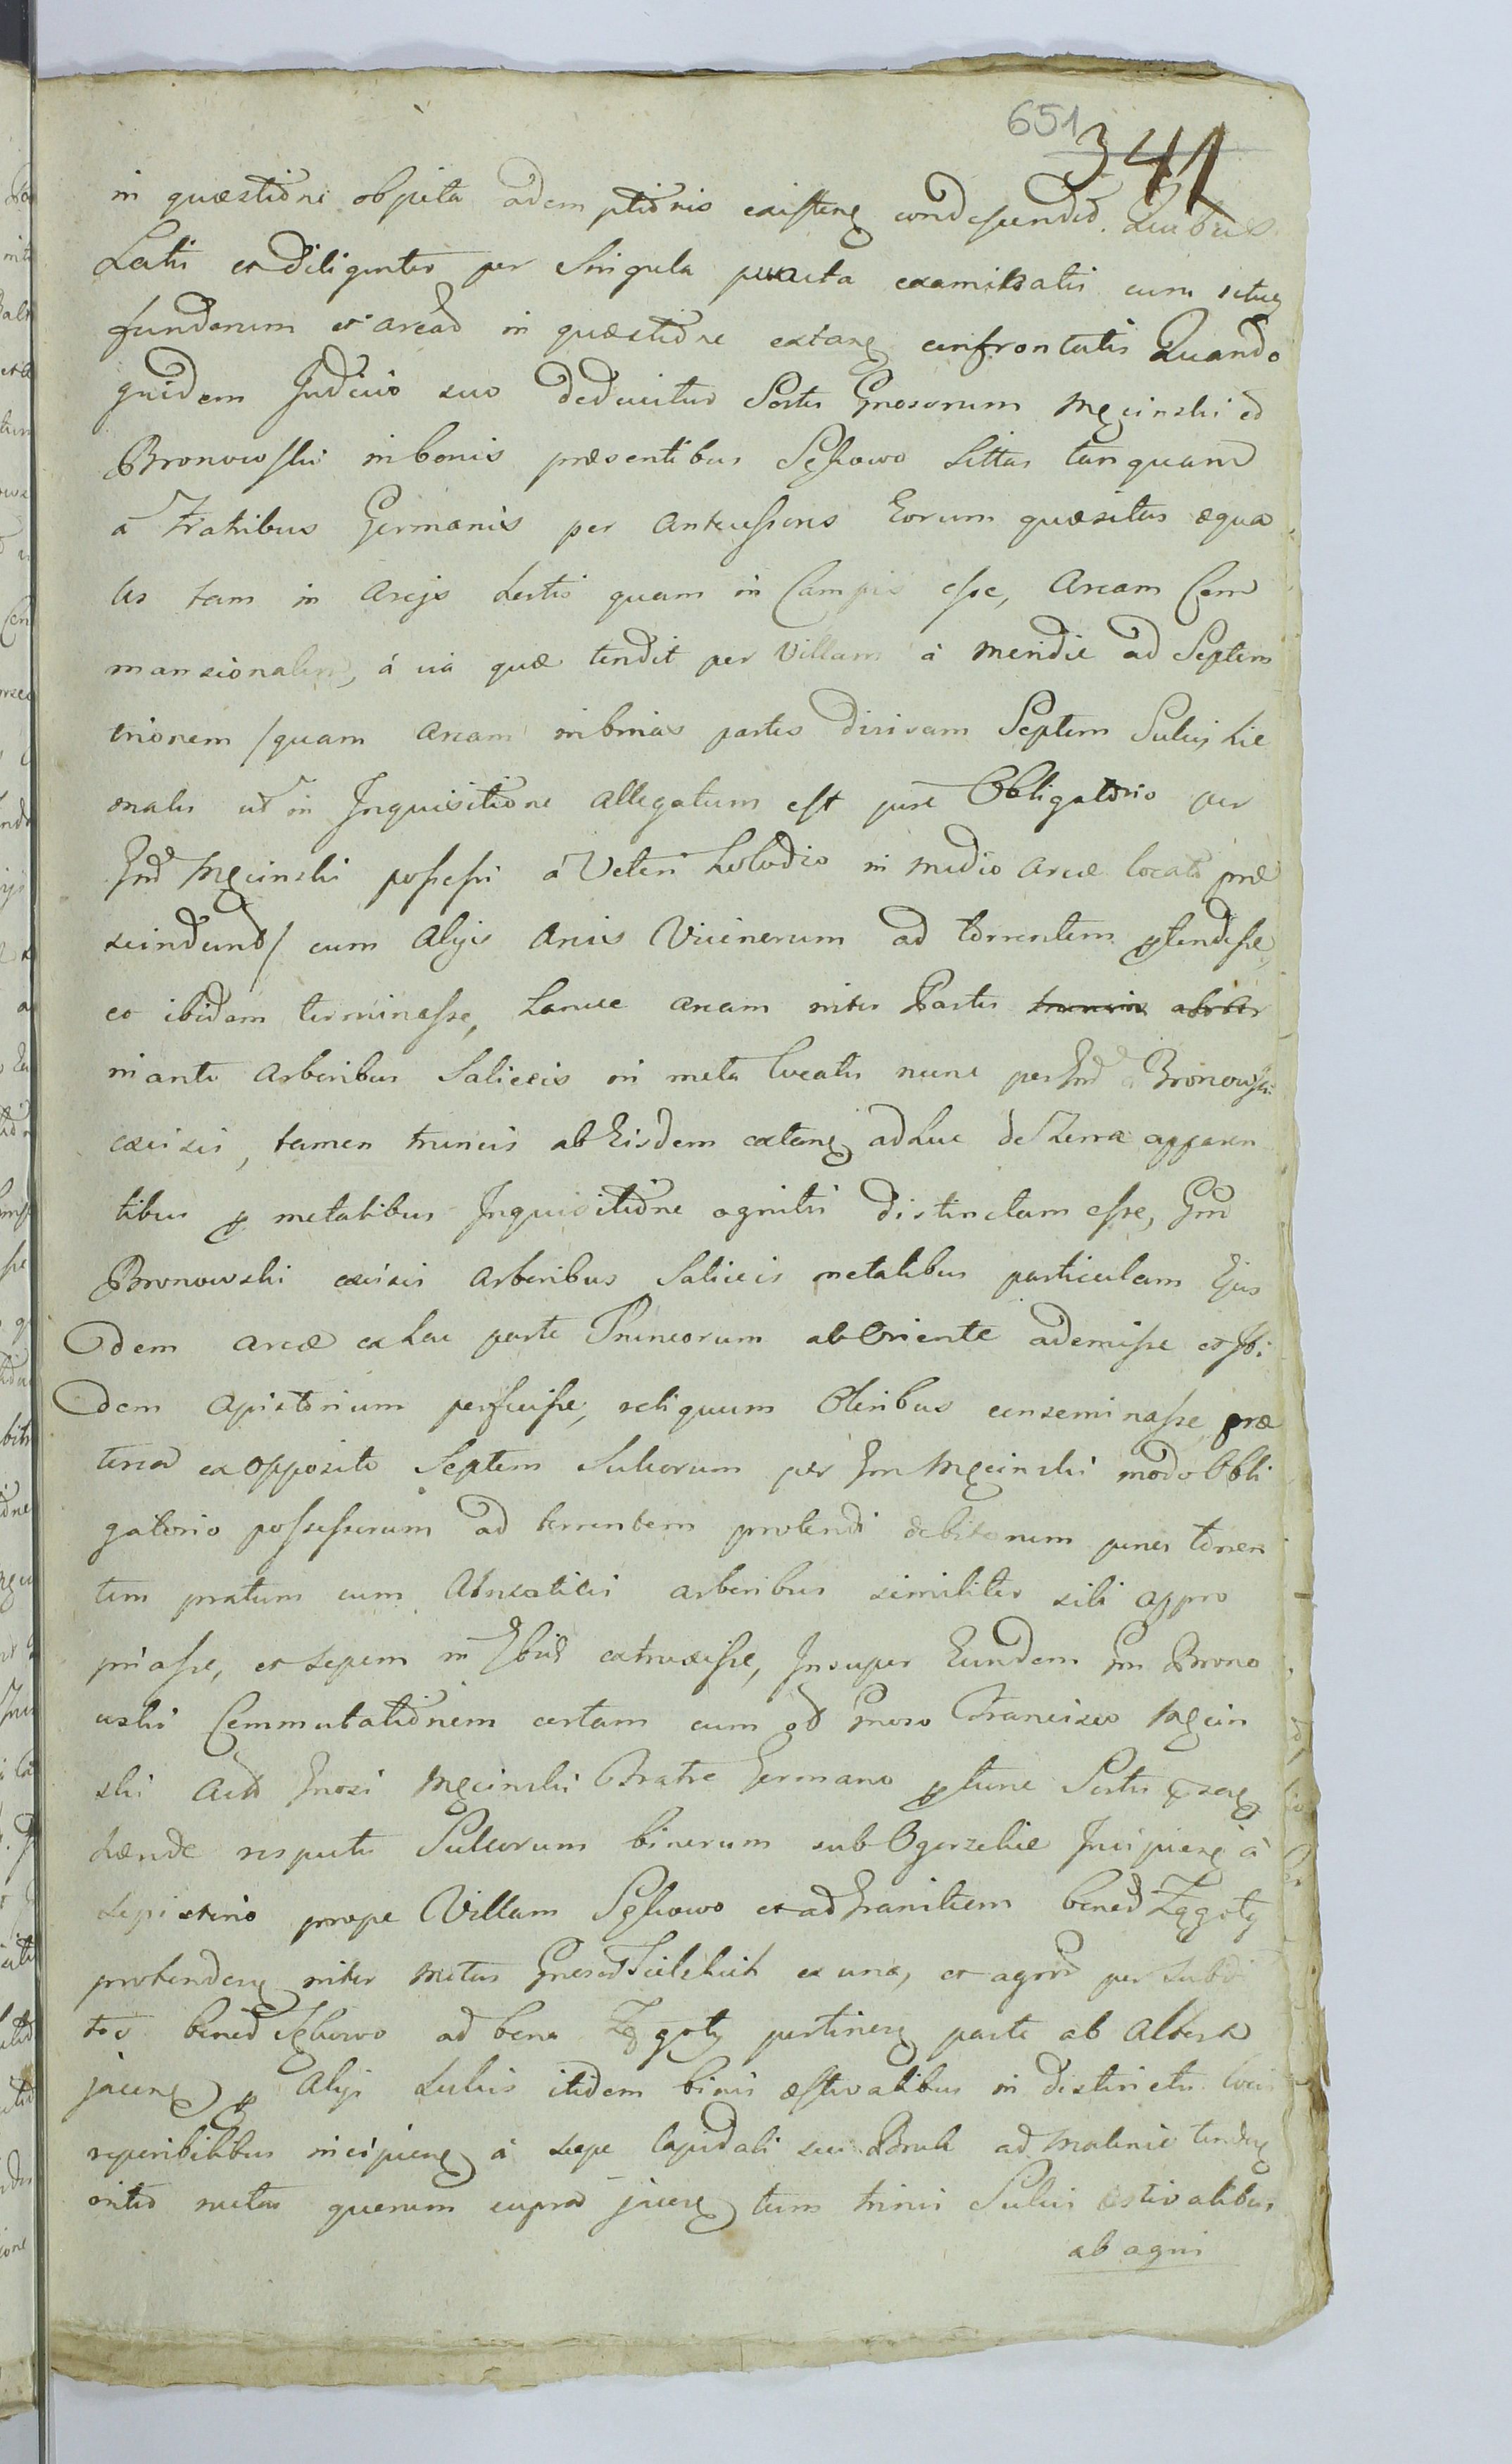 651 341
in quæstione obpita ademptionis existen condescendid. Quibus
Lectis et diligenter per Singula puncta examinatis cum situ
fundorum et aread in quæstione extan confrontatis Quando
quidem Judicio suo deducitur Sortes Gnosorum Męcinski ed
Bronowski in bonis præsentibus Sękowo sittas tanquam
a Fratribus Germanis per antecessores Eorum quæsitas æqua
les tam in areis sortis quam in Campis esse, Aream Com
mansionalem, á via quæ tendit per Villam á meridie ad Septem
trionem /quam aream in binas partes divisam Septem Sulcis hie
malis ut in Inquisitione allegatum est jure Obligatorio per
Gnd Męcinski possessi á Veteri holodio in medio areæ locato præ
scindund/ cum alijs areis Vicinorum ad torrentem ptendisse,
et ibidem terminasse, hancce aream inter Partes
mante arboribus Saliceis in meta locatis nunc per Gnd Bronowski
excisis, tamen truncis ab Eisdem extan adhuc de Terra apparen
tibus p metalibus Inquisitione agnitis distinctam esse, Gnd
Bronowski excisis arboribus Saliceis metalibus particulam Ejus
dem areæ ex hac parte Truncorum ab Oriente ademisse et Ibi
dem apistorium perfecisse, reliquum Oleribus conseminasse, præ
terea ex opposito Septem Sulcorum per Gnd Męcinski modo Obli
gatorio possessorum ad torrentem protendi debitorum penes torren
tem pratum cum arboribus similiter sibi appro
priasse, et sepem in extruxisse, Insuper Eundem Gn Brono
wski Commutationem certam cum od Gnoso Francisco Męcin
ski Gnosi Męcinski Fratre Germano ptunc Sortis
respectu Sulcorum binorum sub Ogorzelice Incipien á
prope Villam Sękowo et ad Granitiem bonod Zągoty
protenden inter metas Gnosod ex una, et agrod per subdi
tos bonod Sękowo ad bona Zągoty pertinen parte ab altera
jacen p alys sulcis itidem binis æstivalibus in districtu locis
reperibilibus incipien á sepe lapidali seu Bruk ad Malenie tenden
inter metas quorum supra jacen tum trinis Sulcis æstivalibus
ab agris